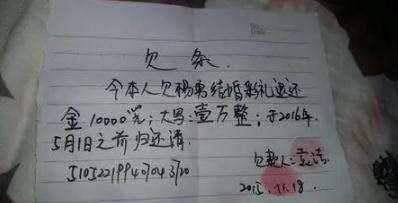 欠条
今本人欠杨勇结婚彩礼退还
金10000元;大写:壹万整;于2016年
5月1日之前归还清.
欠款人:
2015.11.18.